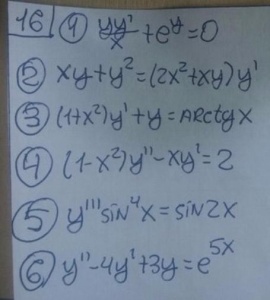 16 1) yy'/x + e^y = 0
2) xy + y² = (2x² + xy) y'
3) (1+x²) y' + y = arctg x
4) (1-x²) y'' - xy' = 2
5) y''' sin⁴x = sin 2x
6) y'' - 4y' + 3y = e^5x